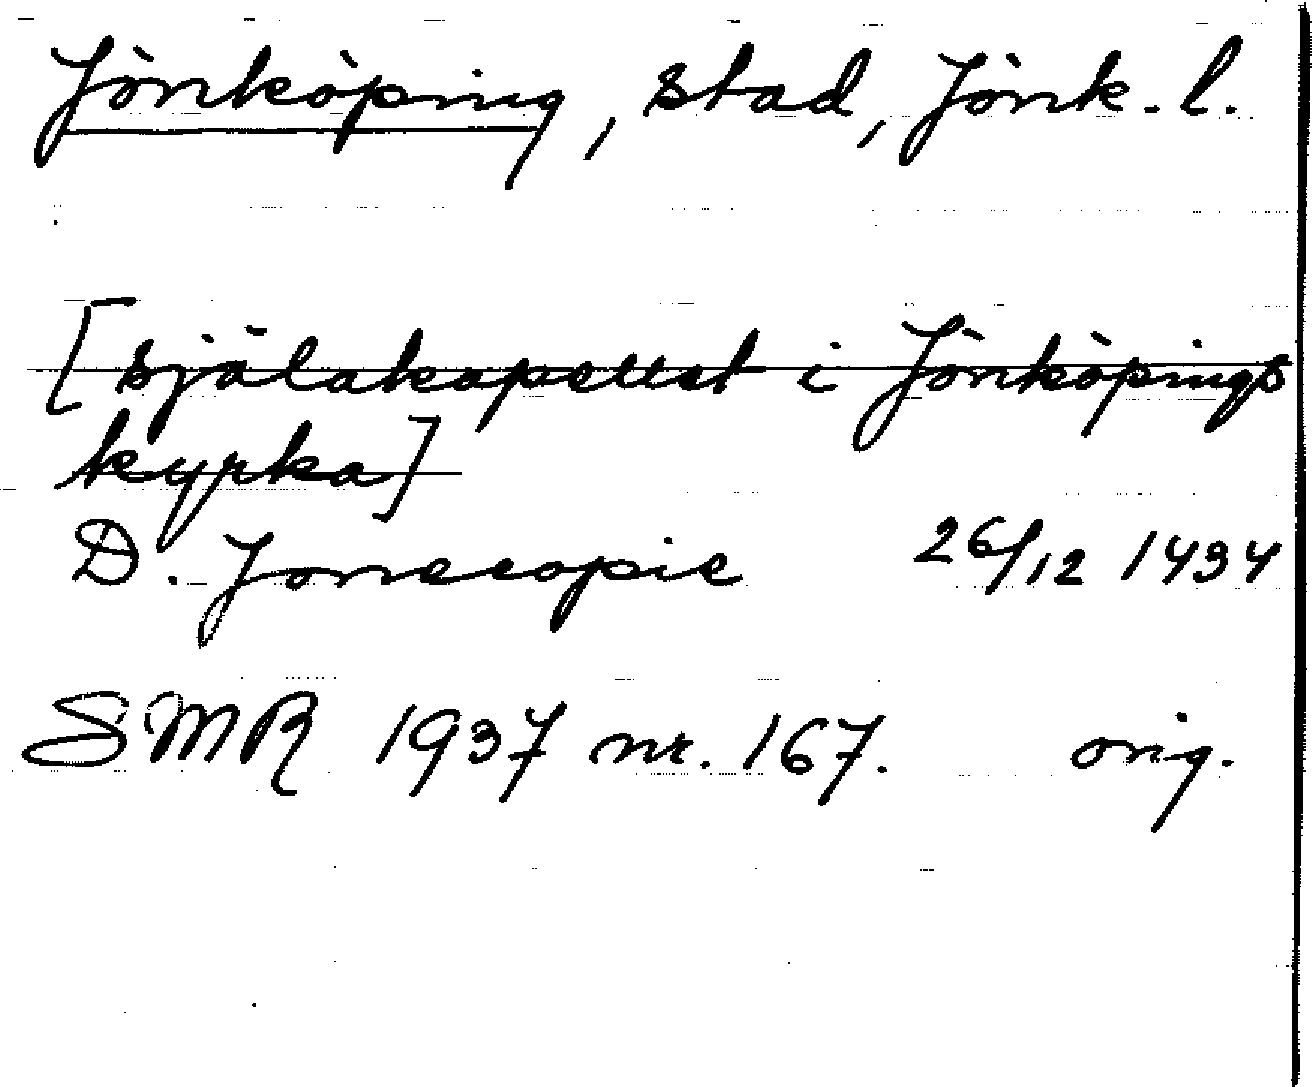 Jönköping, stad, Jönk. l.
[själakapellet i Jönköpings
kyrka]
D. Joneeopie 26/12 1434
SMR 1937 nr. 167. orig.